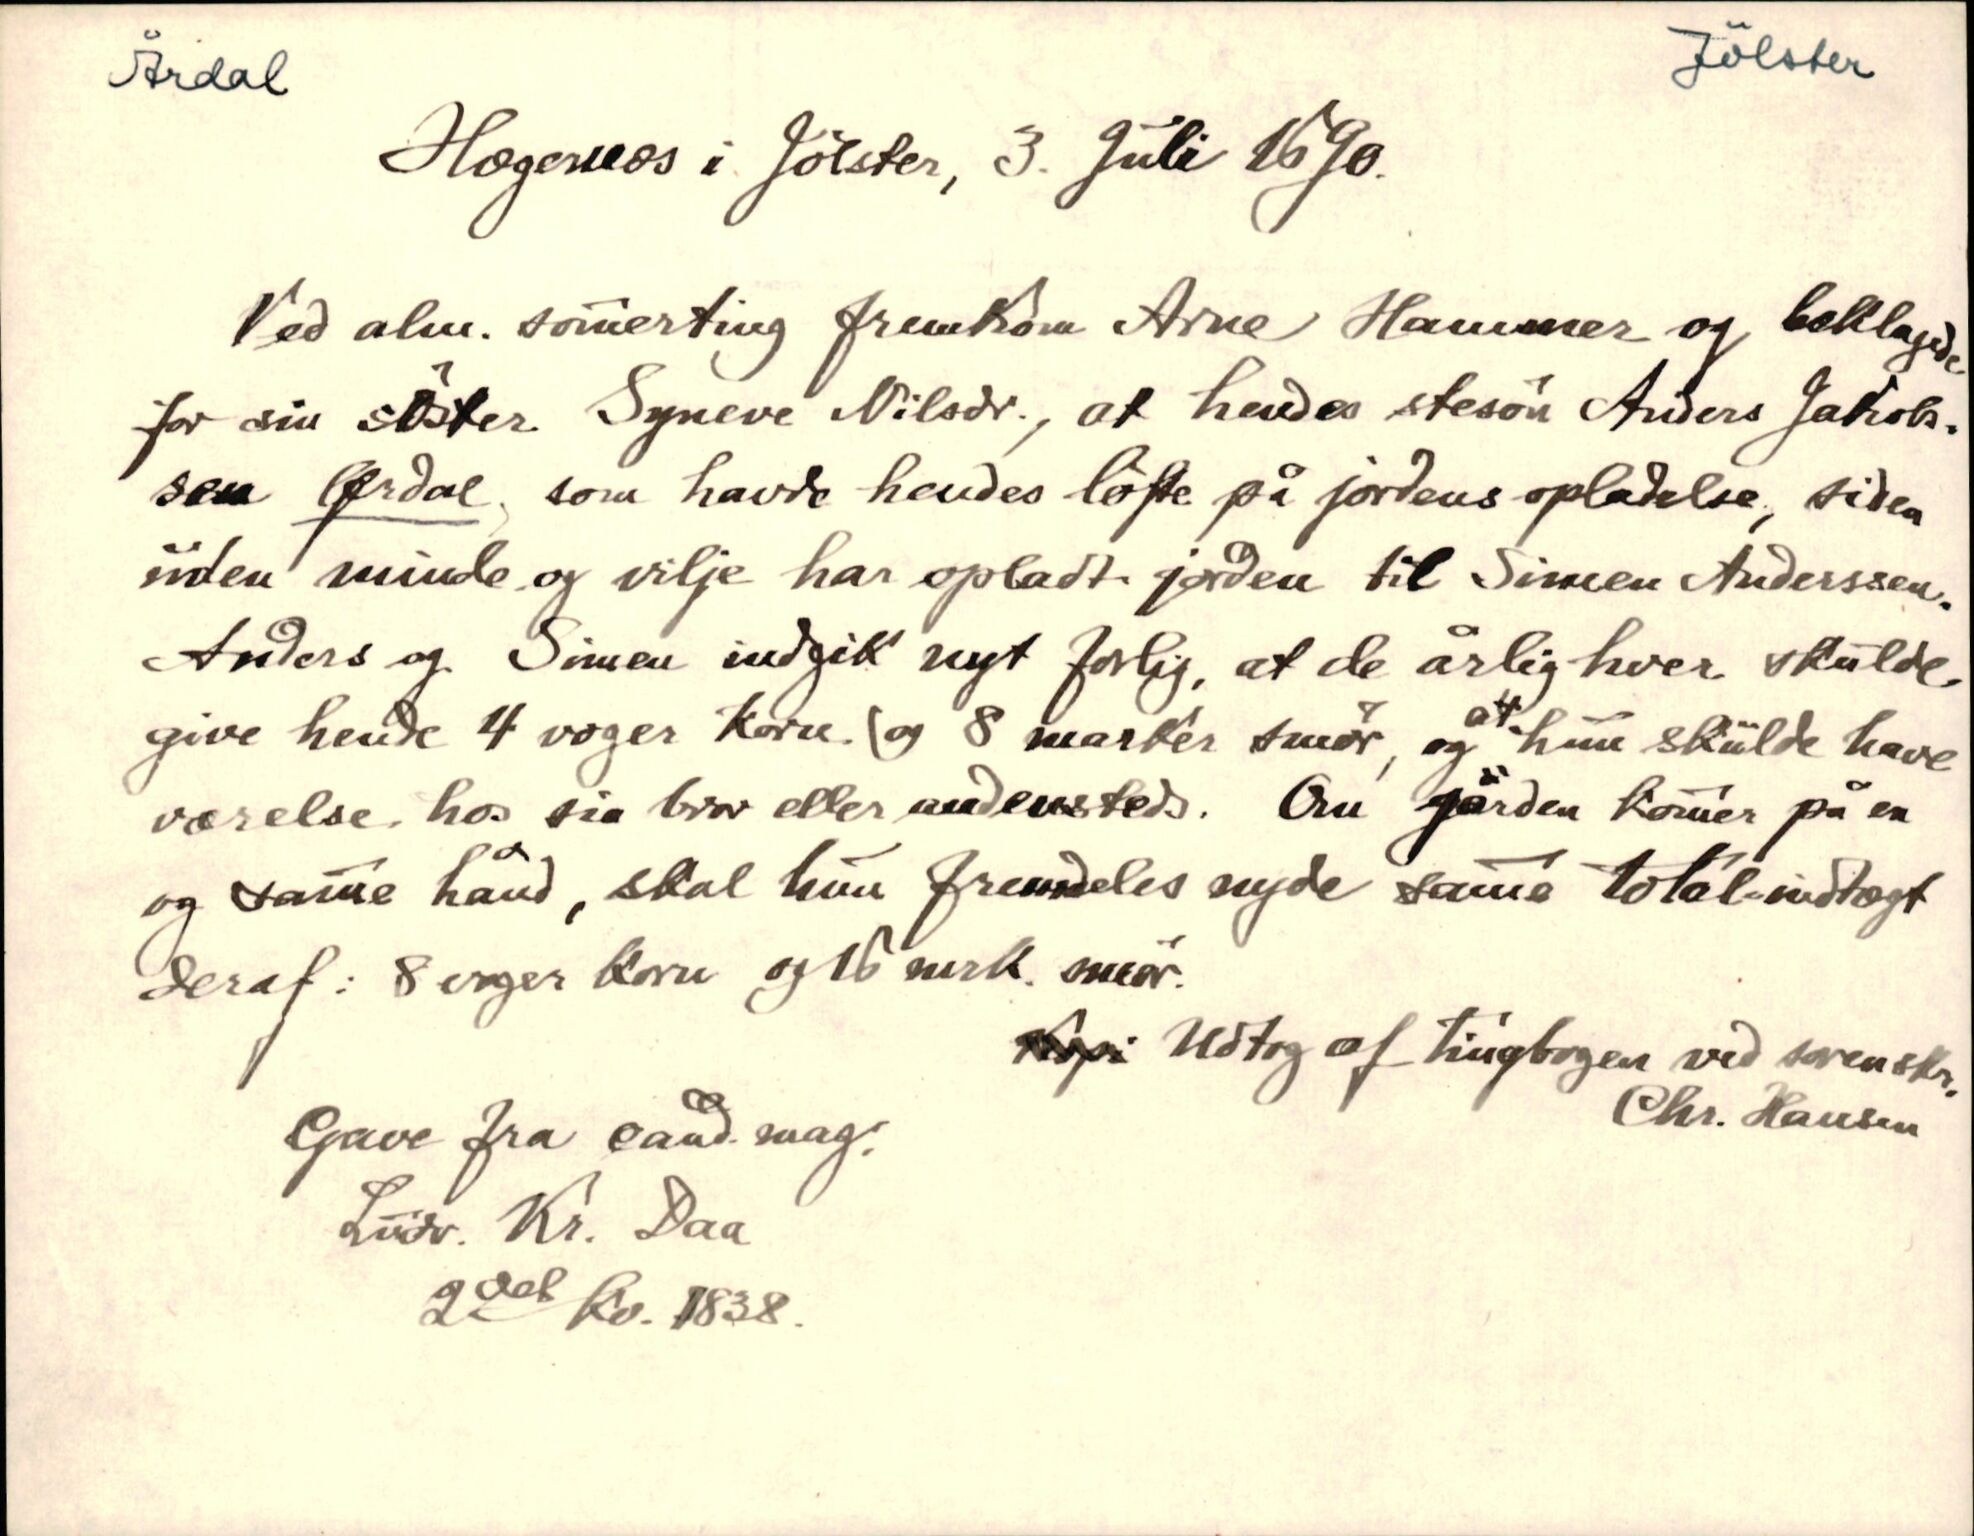 Årdal
Jölster
Hægernæs i Jölster, 3. Juli 1690.
Ved alm. som̅erting fremkom Arne Hammer og beklagede
for sin söster Syneve Nilsdr., at hendes stesön Anders Jakobs-
sen Ørdal, som havde hendes löfte på jordens opladelse, siden
uden minde og vilje har opladt jorden til Simen Anderssen.
Anders og Simen indgik nyt forlig, at de årlig hver skulde
give hende 4 voger korn (og 8 marker smör, og at hun skulde have
værelse hos sin bror eller andensteds. Om gården kom̅er på en
og sam̅e hånd, skal hun fremdeles nyde sam̅e total-indtægt
deraf: 8 voger korn og 16 mrk. smör.
Udtog af tingbogen ved sorenskr.
Chr. Hansen
Gave fra cand. mag.
Ludv. Kr. Daa
2det Kv. 1838.